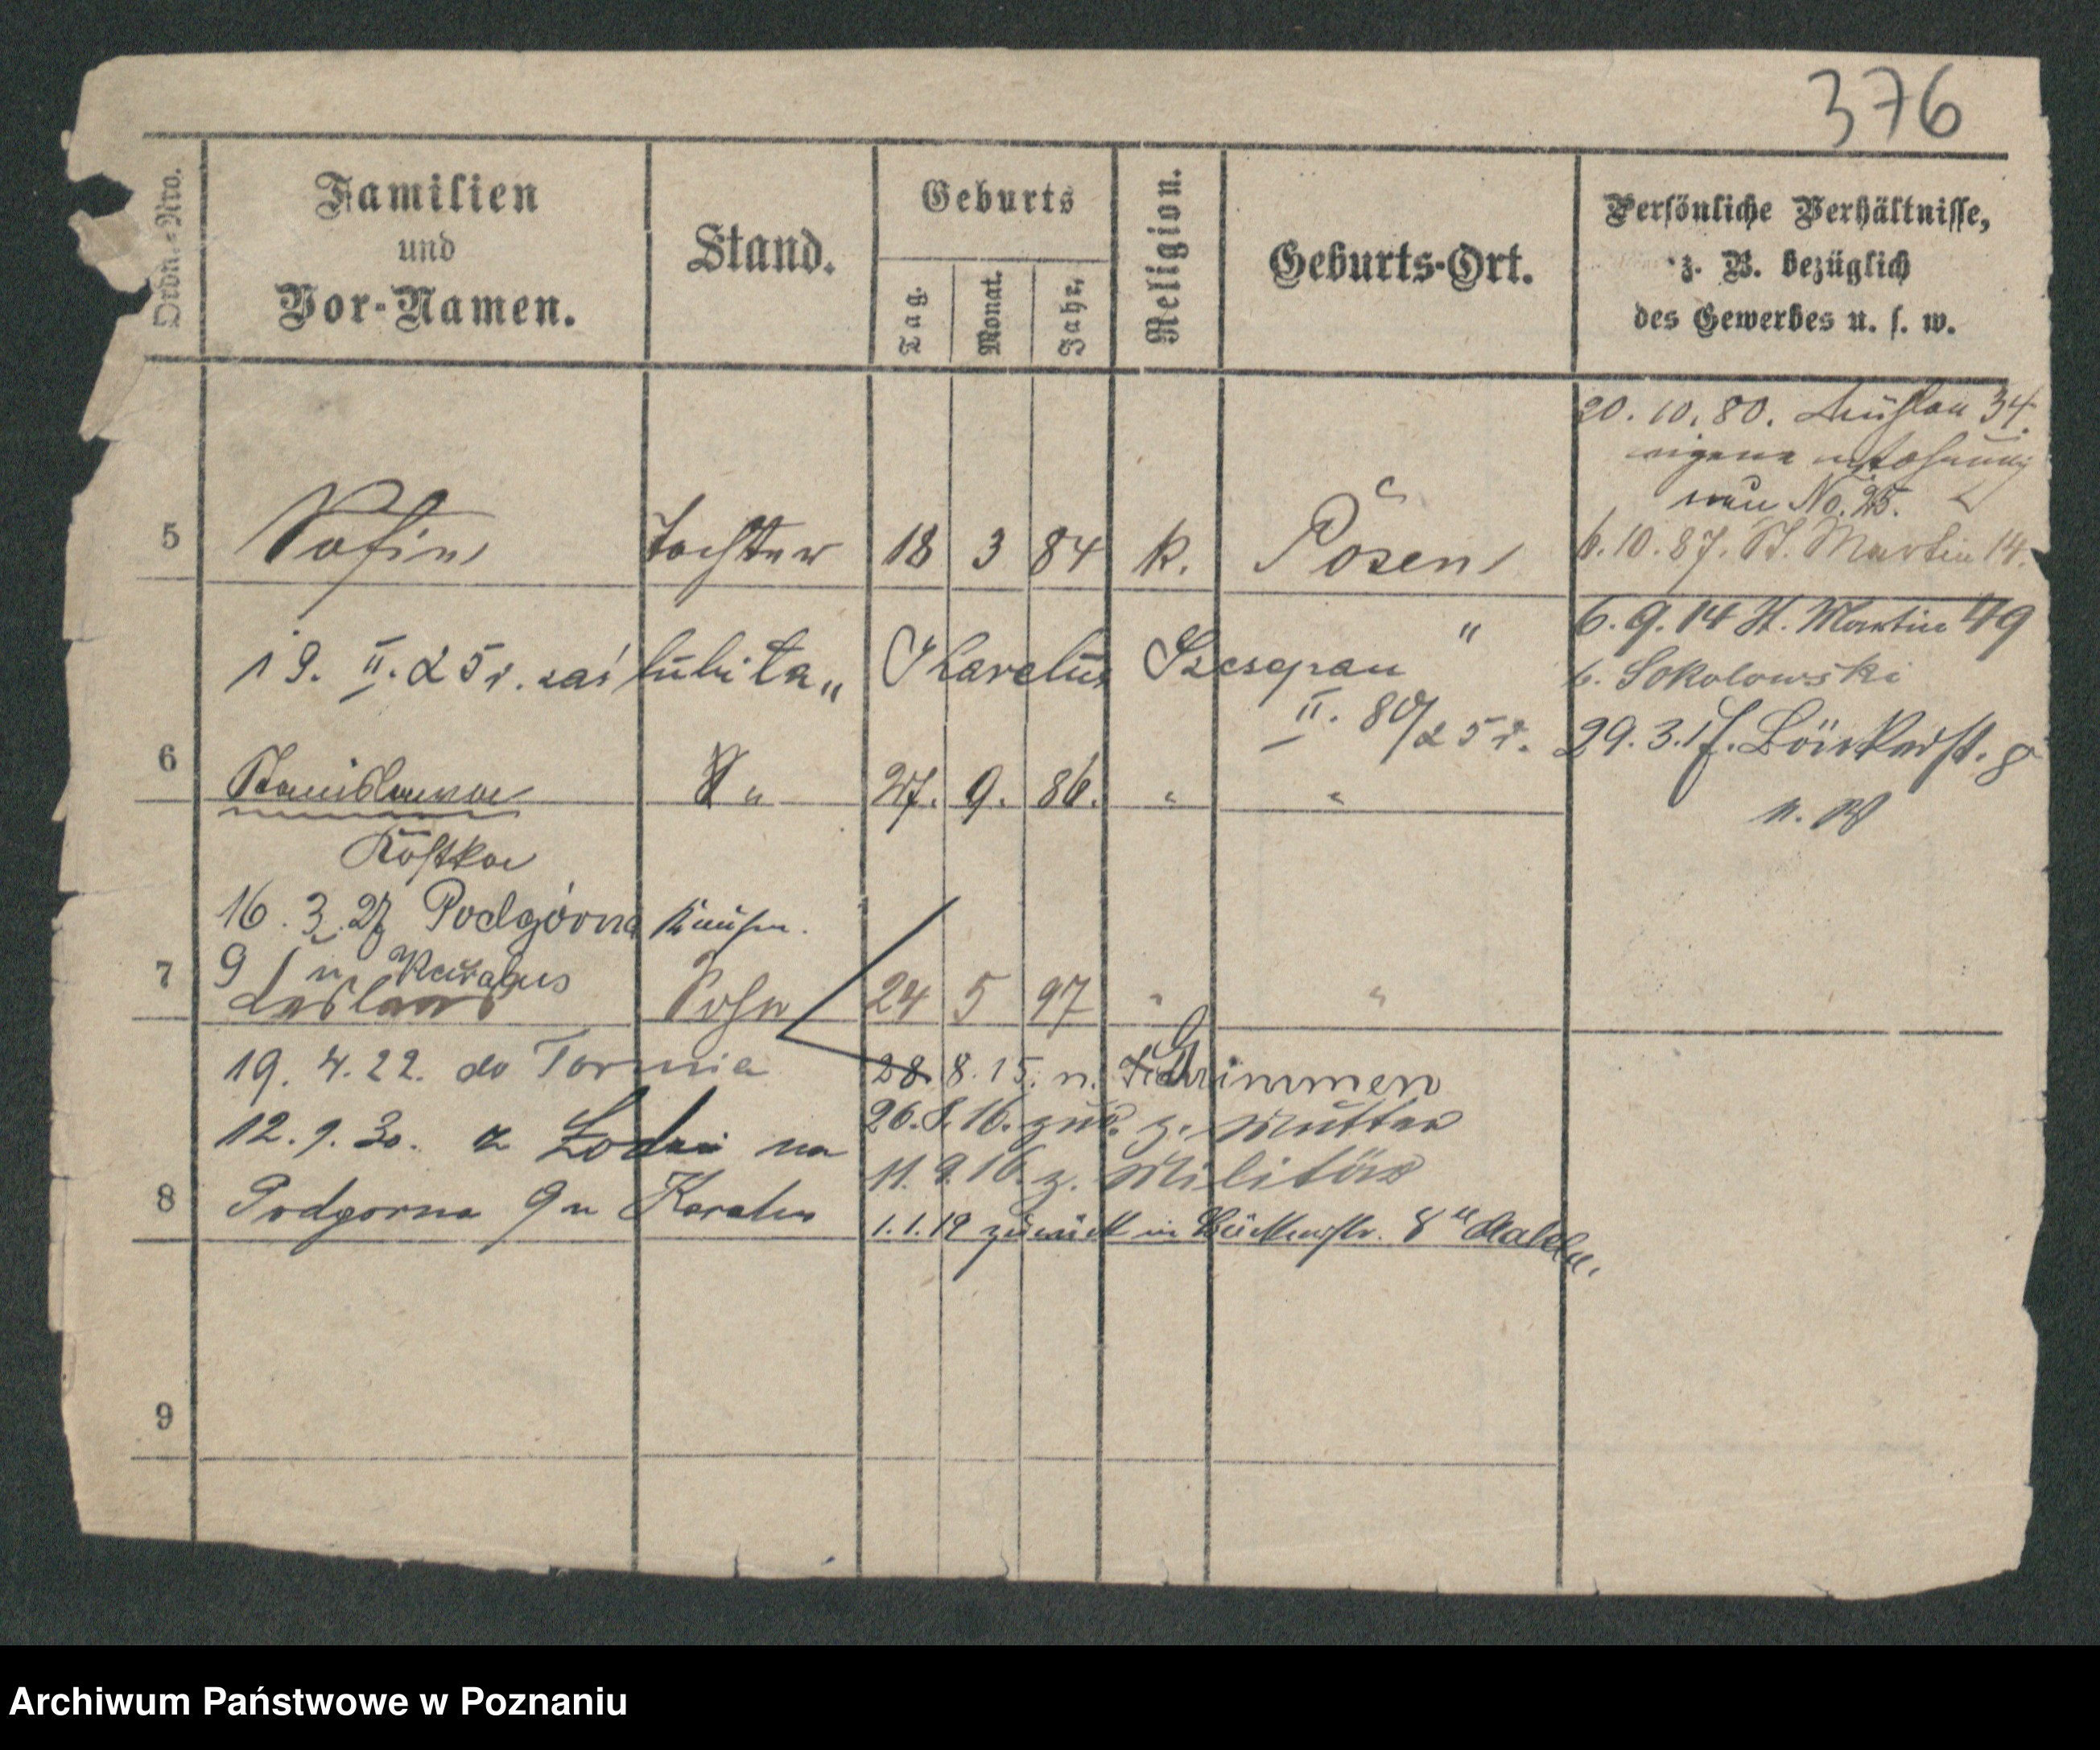 376
Ordn.-Nro.
Familien
und
Vor-Namen.
Stand.
Geburts
Tag.
Monat.
Jahr.
Religion.
Geburts-Ort.
Persönliche Verhältnisse,
z. B. bezüglich
des Gewerbes u. s. w.
20. 10. 80. 34.
eigene
neu No. 25.
5 Sofie Tochter 18 3 84 k. Posen 6. 10. 87. St. Martin 14.
6. 9. 14 St. Martin 49
b. Sokolowski
19. II. 25 r. zaślubiła „ Karalus Szczepan "
II. 80/25 r.
29. 3. 17. Bäckerst. 8
6 Stanislawa " 27. 9. 86. " "
n. W
Kostka
16. 3. 27 Podgórna
9 / n Karalus
7 Leslaus Sohn 24 5 97 " "
19. 4. 22. do Torunia
28. 8. 15. n. Grimmen
26. 8. 16. zur. z. Mutter
12. 9. 30. z Łodzi na
11. 9. 16. z. Militär
8 Podgorna 9 n Karalus
1. 1. 19 zurück in Bäckerstr. 8
9
Archiwum Państwowe w Poznaniu